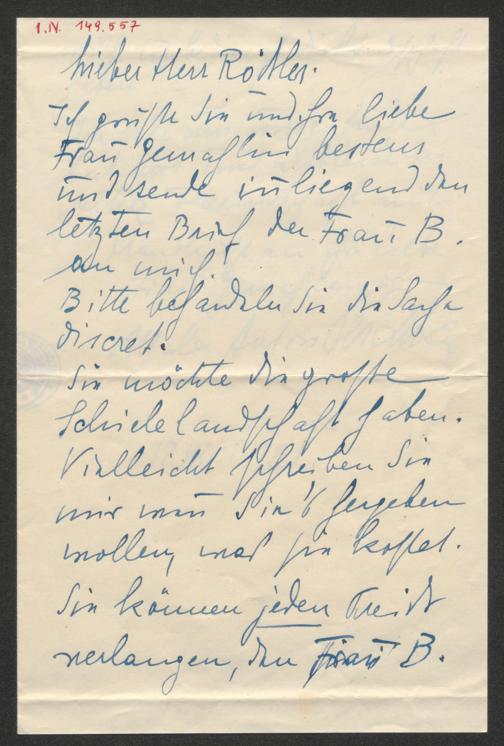 I.N. 149.557
Lieber Herr Rößler.
Ich grüße Sie und Ihre liebe
Frau Gemahlin bestens
und sende inliegend den
letzten Brief der Frau B.
an mich.
Bitte behandeln Sie die Sache
discret.
Sie möchte die große
Schielelandschaft haben.
Vielleicht schreiben Sie
mir wenn Sie's hergeben
wollen, was sie kostet.
Sie können jeden Preis
verlangen, den Frau B.